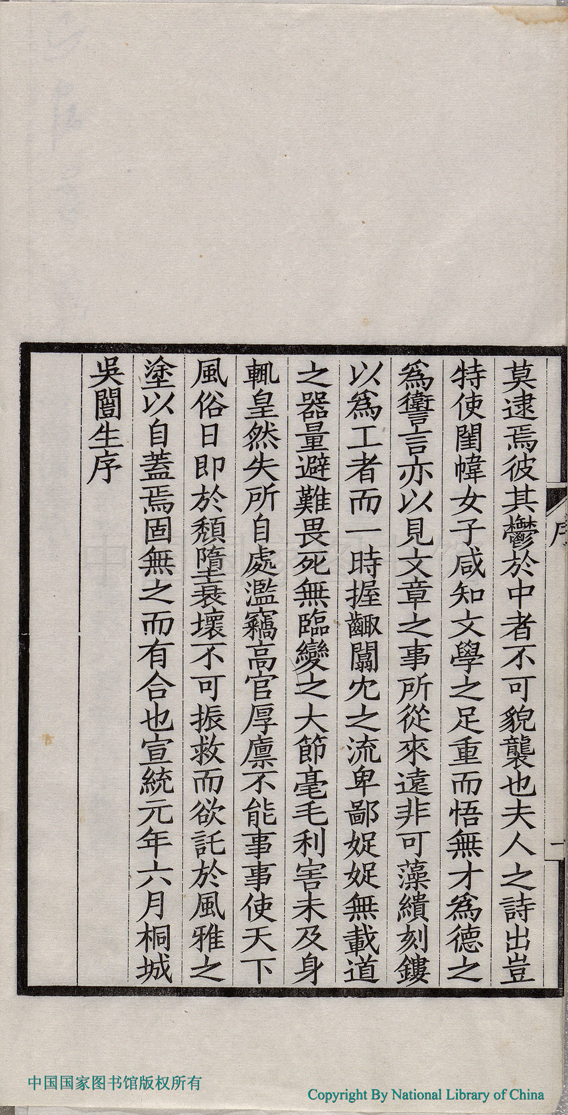 莫逮焉彼其鬱於中者不可貌襲也夫人之詩出豈
特使閨幃女子咸知文學之足重而悟無才爲德之
爲讆言亦以見文章之事所從來遠非可藻繢刻鏤
以爲工者而一時握齱闒冗之流卑鄙娖娖無載道
之器量避難畏死無臨變之大節毫毛利害未及身
輒皇然失所自處濫竊高官厚廪不能事事使天下
風俗日即於頹墮衰壞不可振救而欲託於風雅之
塗以自蓋焉固無之而有合也宣統元年六月桐城
吳闓生序
序
一
中国国家图书馆版权所有
Copyright By National Library of China